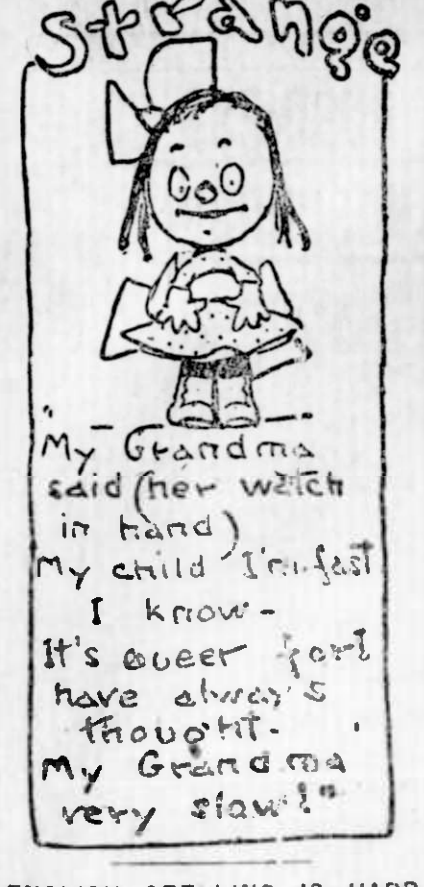 Strange
"My Grandma
said (her watch
in hand)
My child I'm fast
I know-
It's queer for I
have always
thought-
My Grandma
very slow!"
ENGLISH SPELLING IS HARD